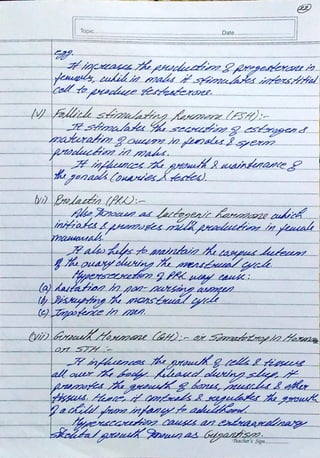 22
Topic
Date
egg.
It increases the production of progesterone in
females, while in males it stimulates interstitial
cell to produce testosterone.
(v) Follicle stimulating hormone (FSH) :-
It stimulates the secretion of estrogen &
maturation of ovum in females & sperm
production in males.
It influences the growth & maintenance of
the gonads (ovaries & testes).
(vi) Prolactin (PRL) :-
Also known as lactogenic hormone which
initiates & promotes milk production in female
mammals.
It also helps to maintain the corpus luteum
of the ovary during the menstrual cycle.
Hypersecretion of PRL may cause :
(a) Lactation in non-nursing women
(b) Disrupting the menstrual cycle
(c) Impotence in men.
(vii) Growth Hormone (GH) :- or Somatotropin Hormone
or STH :-
It influences the growth of cells & tissues
all over the body. Released during sleep. It
promotes the growth of bones, muscles & other
tissues. Hence, it controls & regulates the growth
of a child from infancy to adulthood.
Hypersecretion causes an extraordinary
skeletal growth known as Gigantism.
Teacher's Sign